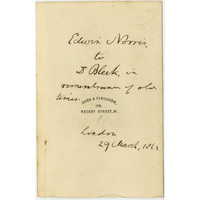 Edwin Norris,
to
Dr Bleek, in
remembrance of older
times.
DUNN & FERGUSON,
REGENT STREET, W.
London
29 March, 186